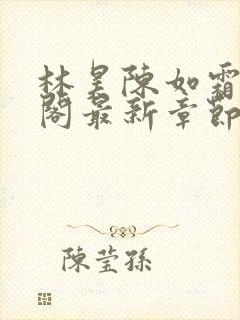 林昊陳如霜
閣最新章節
陳瑩孫